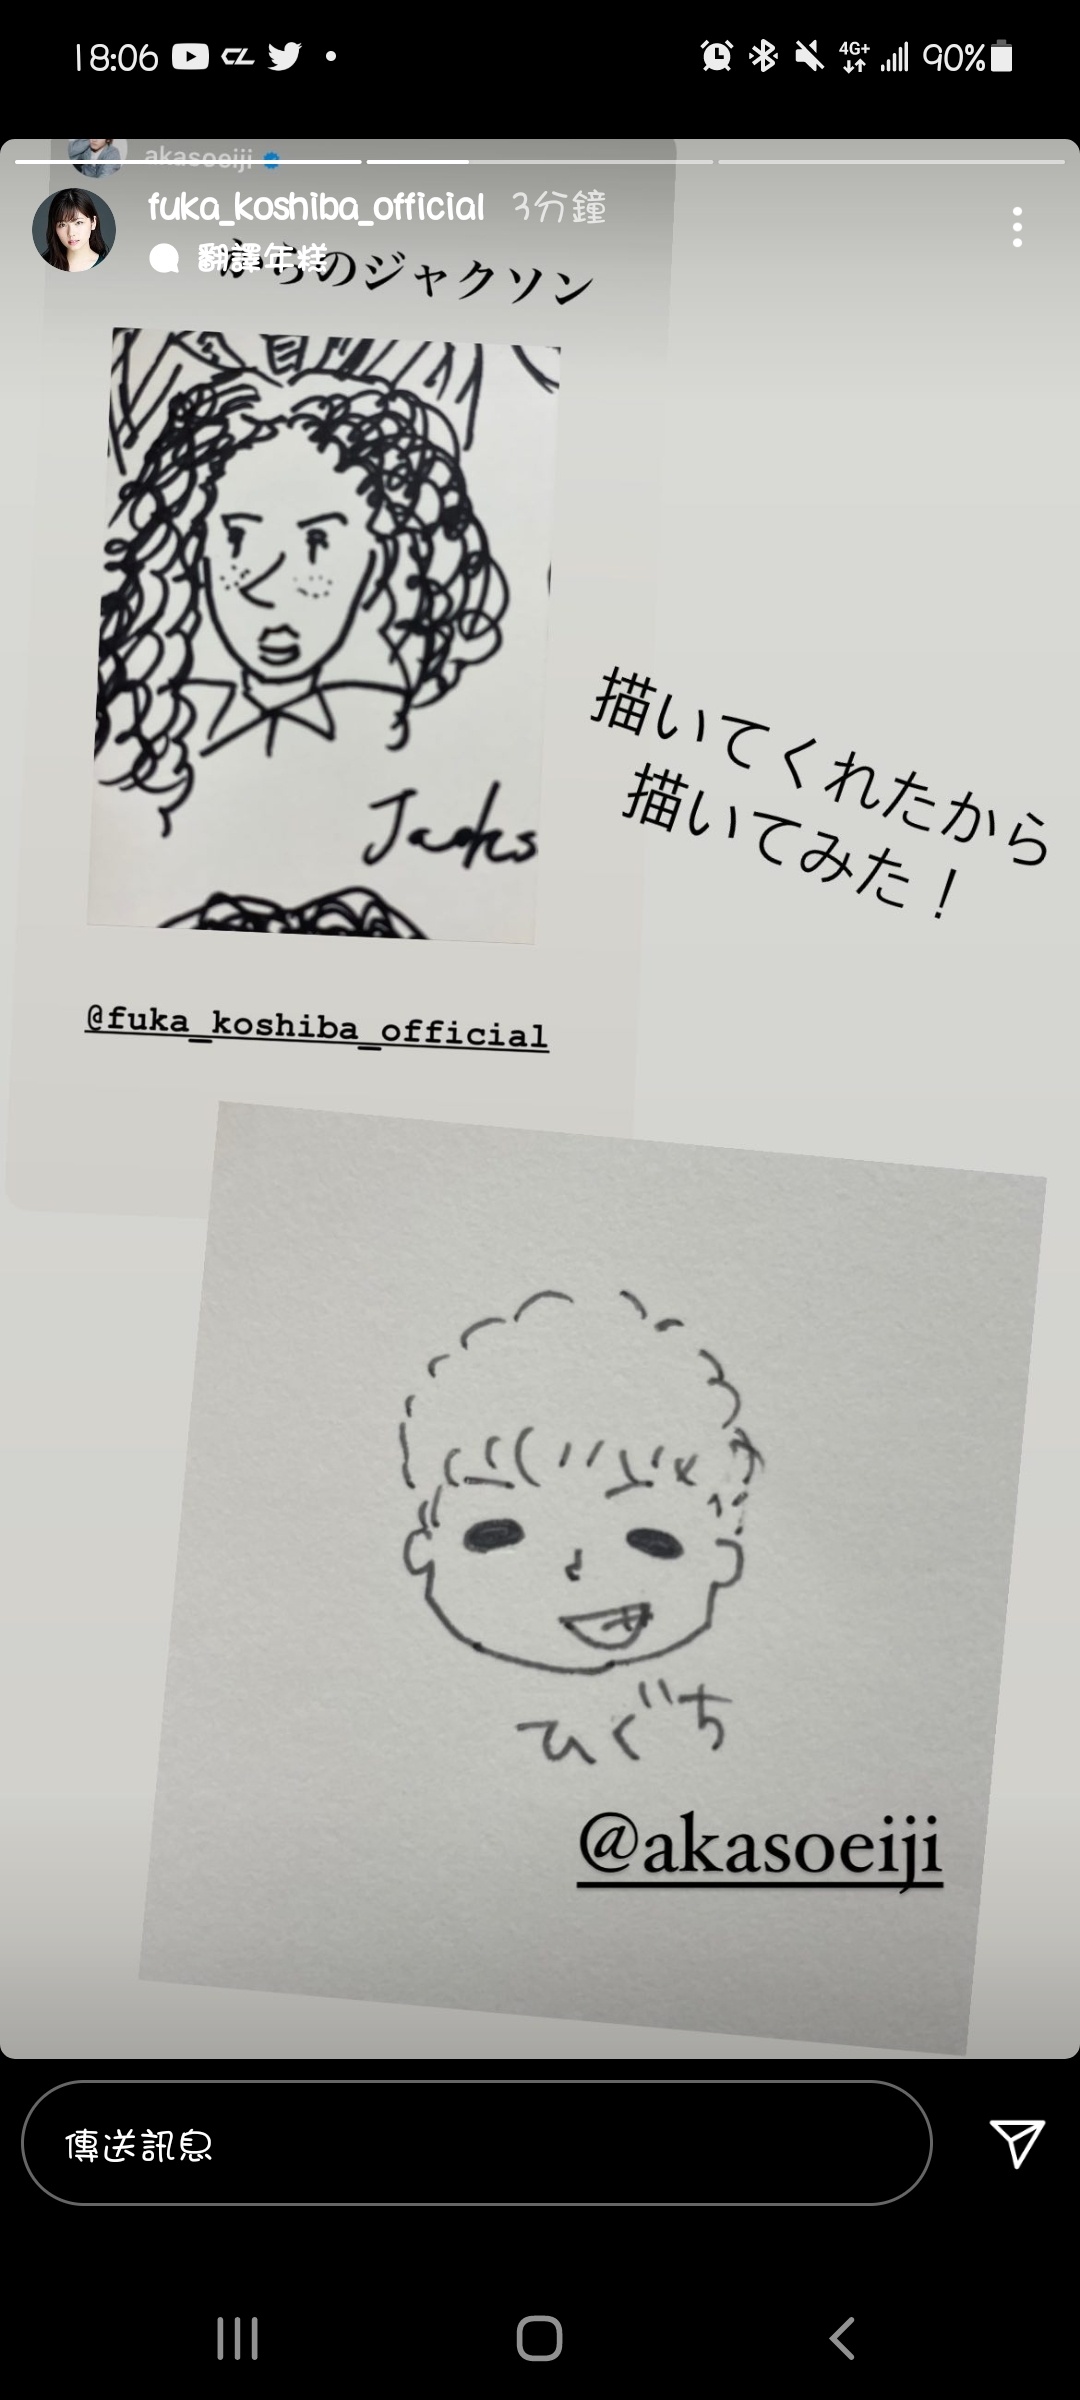 18:06
4G+
90%
akasoeiji
fuka_koshiba_official 3分鐘
翻譯年糕
からのジャクソン
Jacks
描いてくれたから
描いてみた！
@fuka_koshiba_official
ひぐち
@akasoeiji
傳送訊息